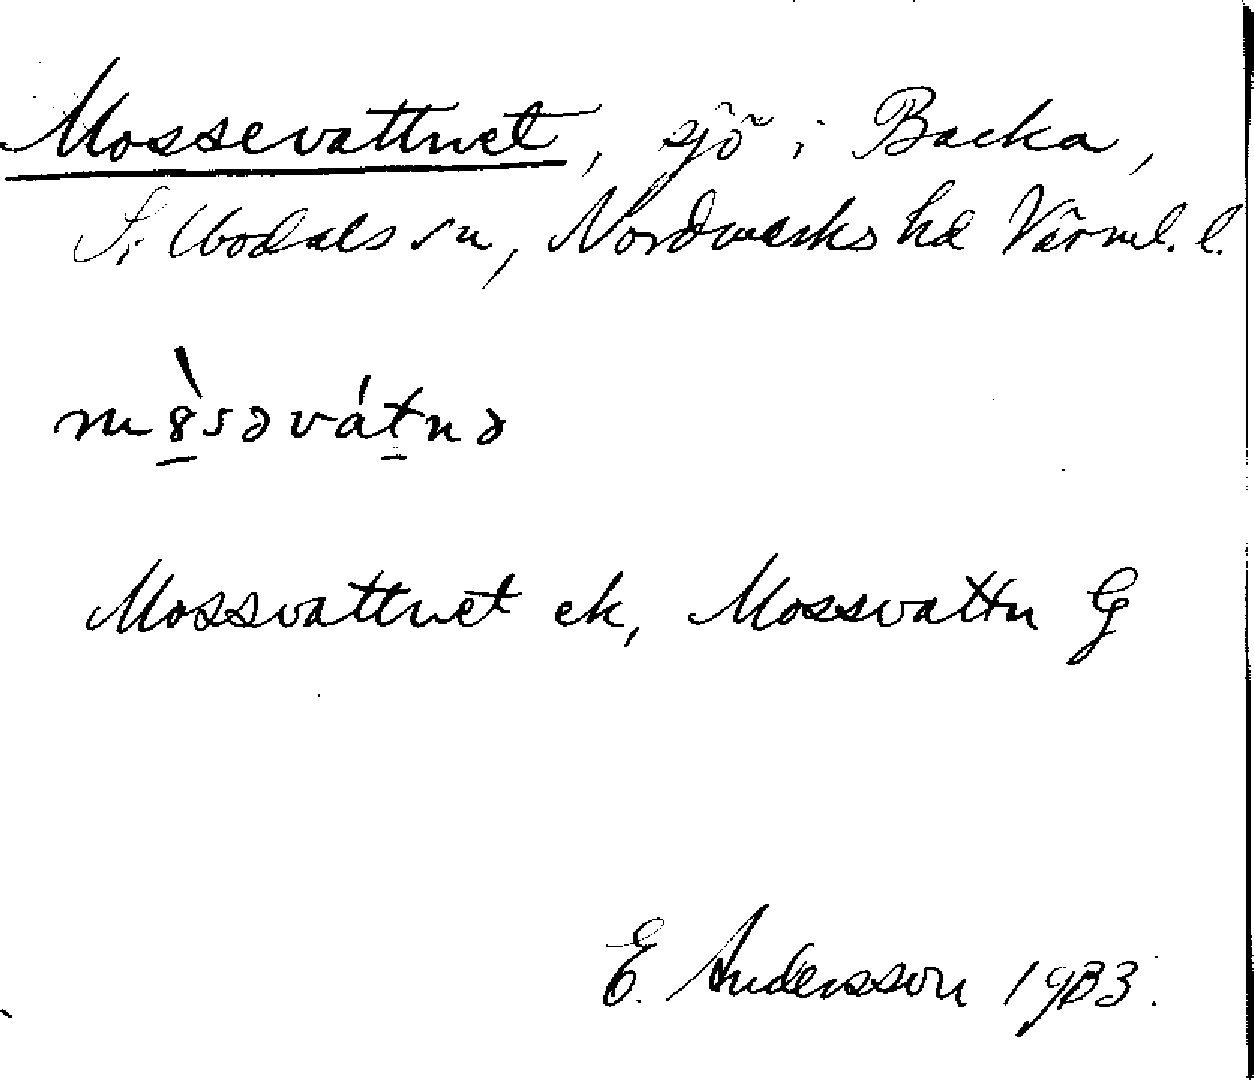 Mossevattnet, sjö i Backa,
Silbodals sn, Nordmarks hd Värml. l.
m8̀səvátnə
Mossvattnet ek, Mossvattn G
E. Andersson 1933.